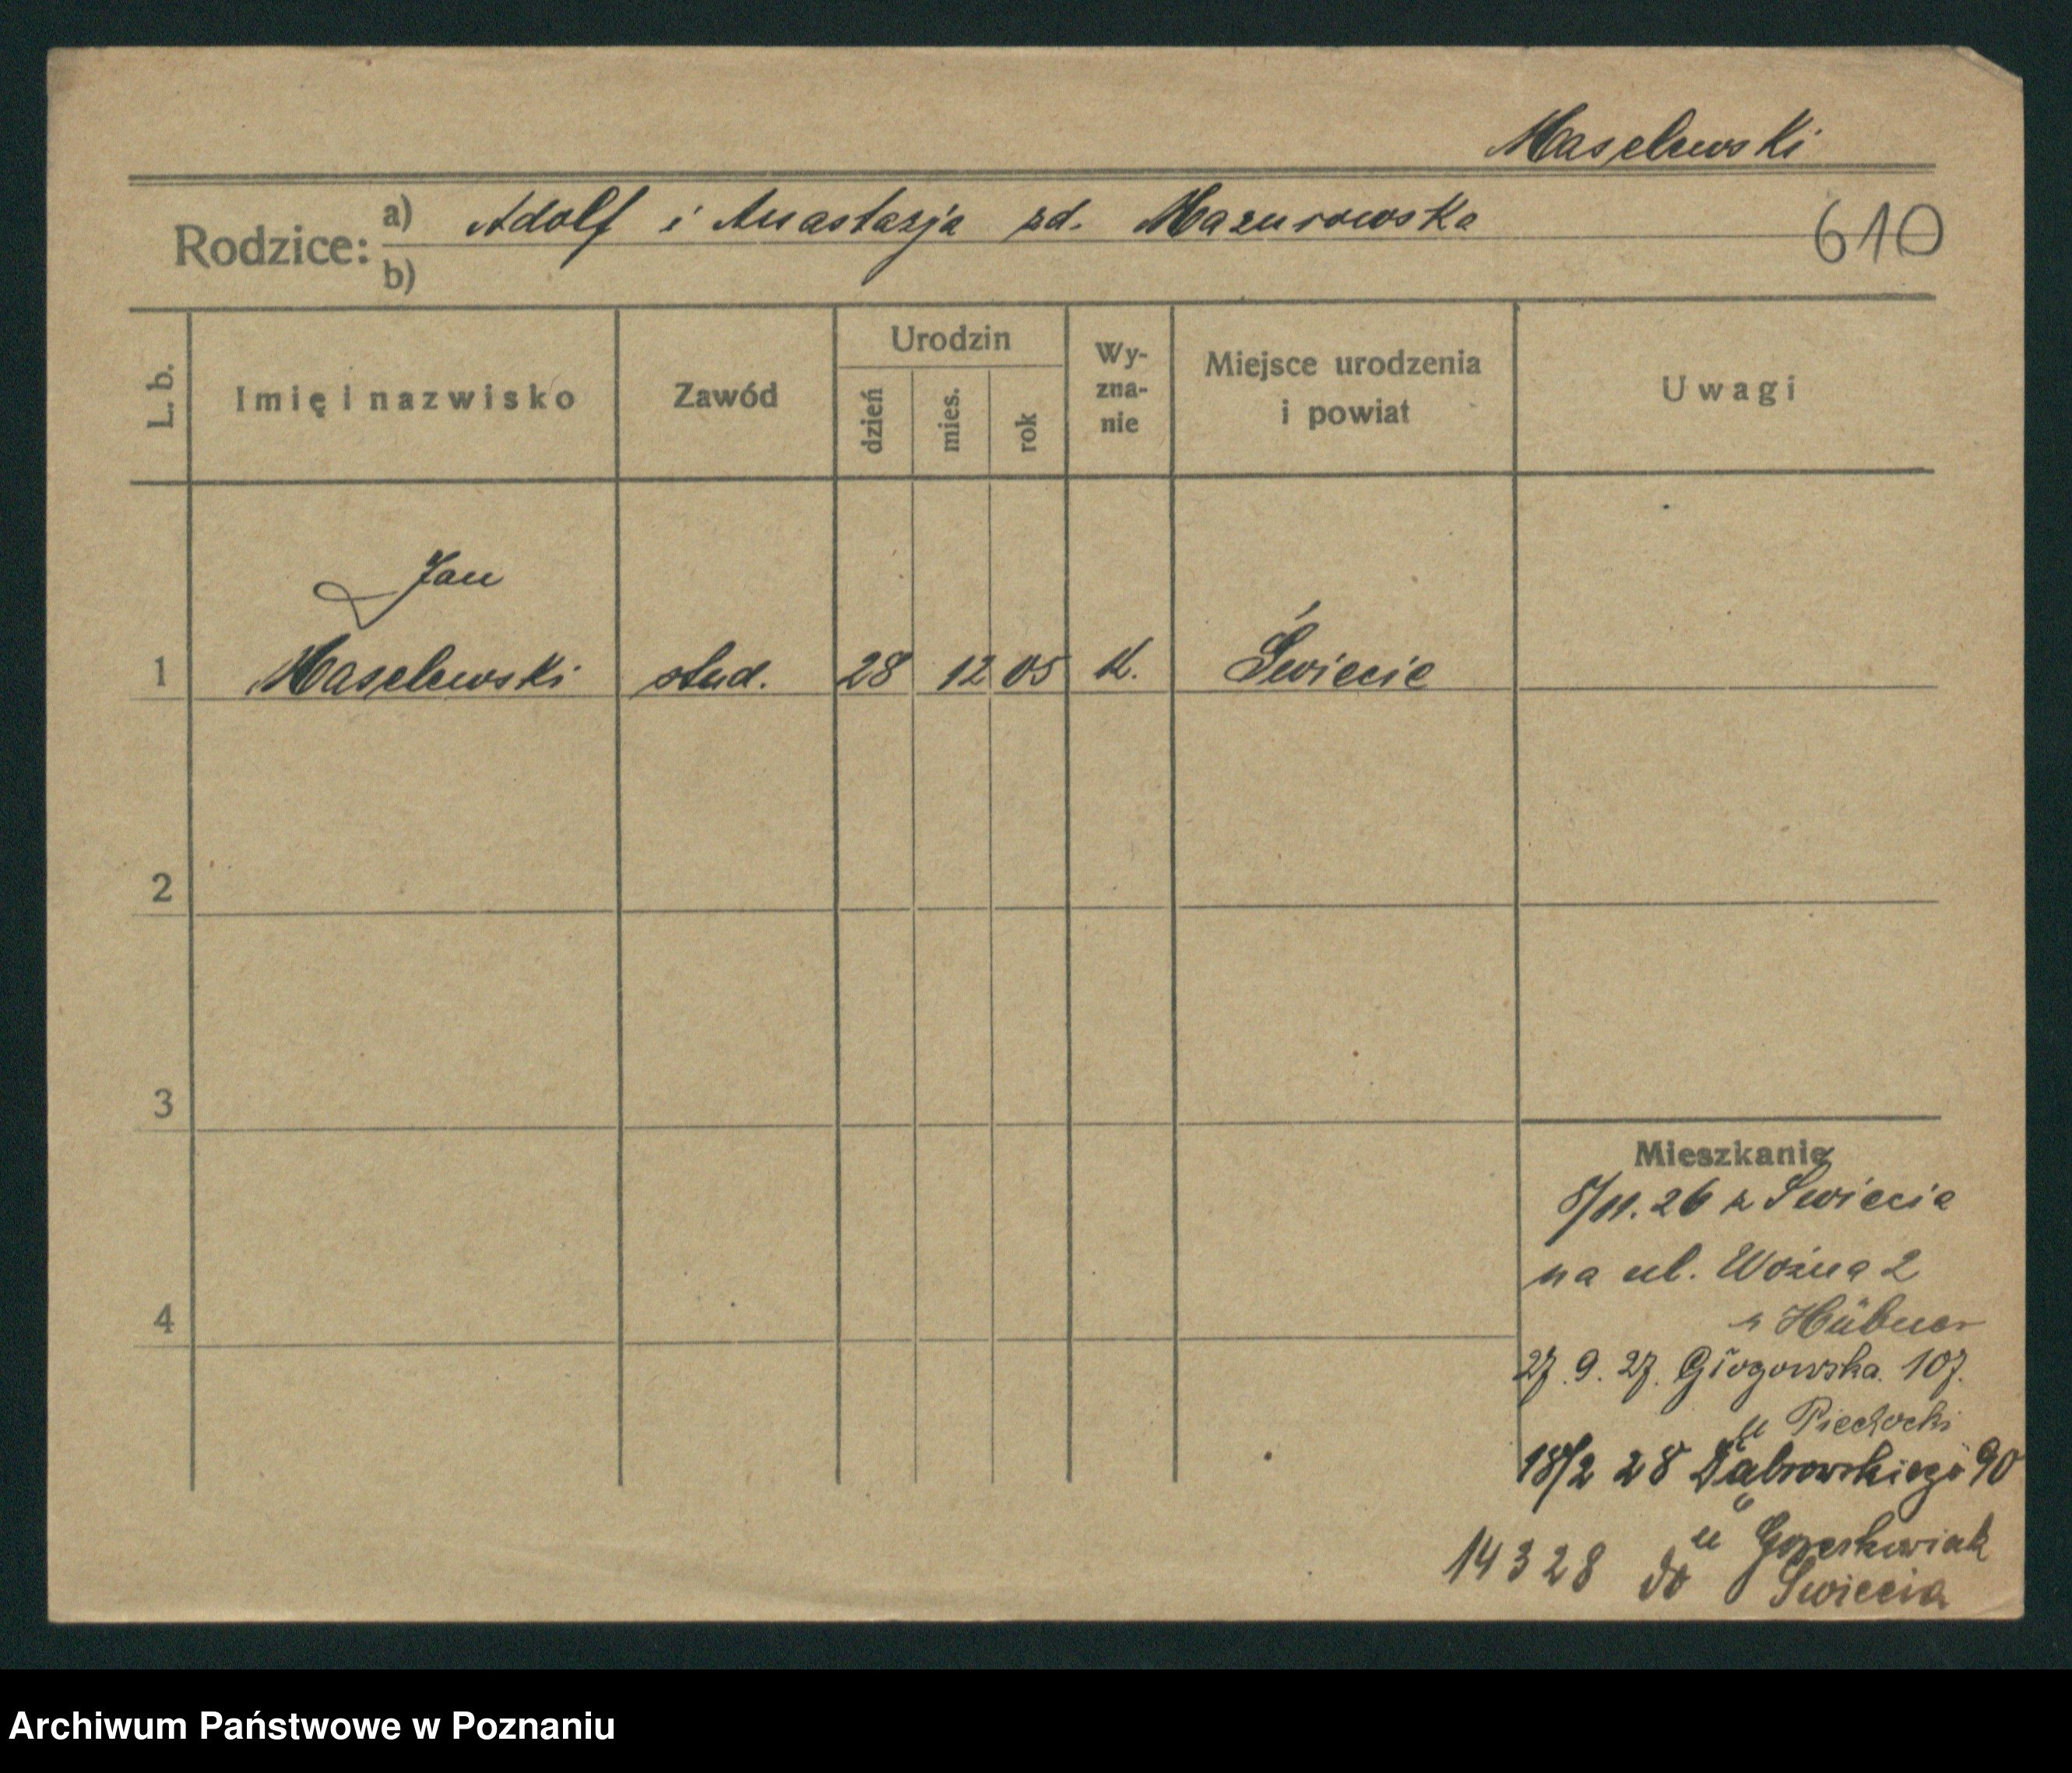 Maselewski
Rodzice: a) Adolf i Anastazja zd. Mazurowska
610
b)
L. b. Imię i nazwisko Zawód Urodzin dzień mies. rok Wyznanie Miejsce urodzenia i powiat Uwagi
Jan
1 Maselewski stud. 28 12 05 k. Świecie
2
3
Mieszkanie
8/11. 26 z Świecia
na ul. Woźna 2
Hübner
4
27. 9. 27. Głogowska 107.
u Piechocki
18/2 28 Dąbrowskiego 90
u Goreskowiak
14 3 28 do Świecia
Archiwum Państwowe w Poznaniu